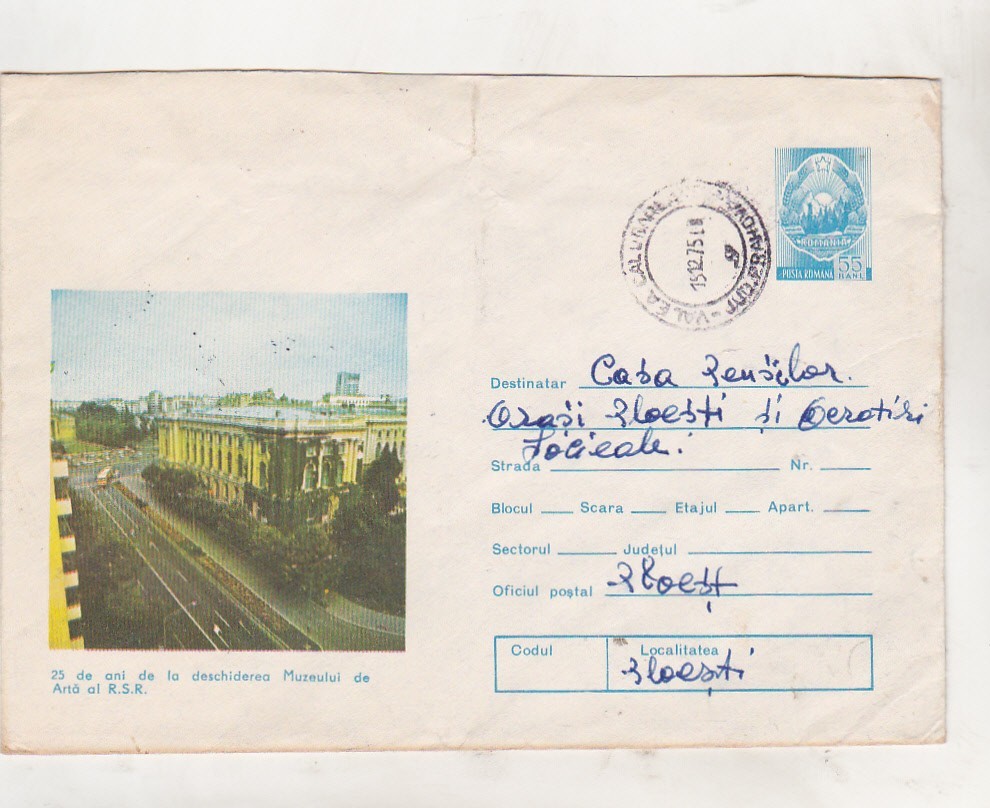 ROMANIA
POSTA ROMANA 55 BANI
VALEA CALUGAREASCA
JUD. PRAHOVA
15.12.75
Destinatar Casa Pensiilor.
Orași Ploești și Ocrotiri
Sociale.
Strada Nr.
Blocul Scara Etajul Apart.
Sectorul Județul
Oficiul poștal Ploești
Codul Localitatea
Ploești
25 de ani de la deschiderea Muzeului de
Artă al R.S.R.